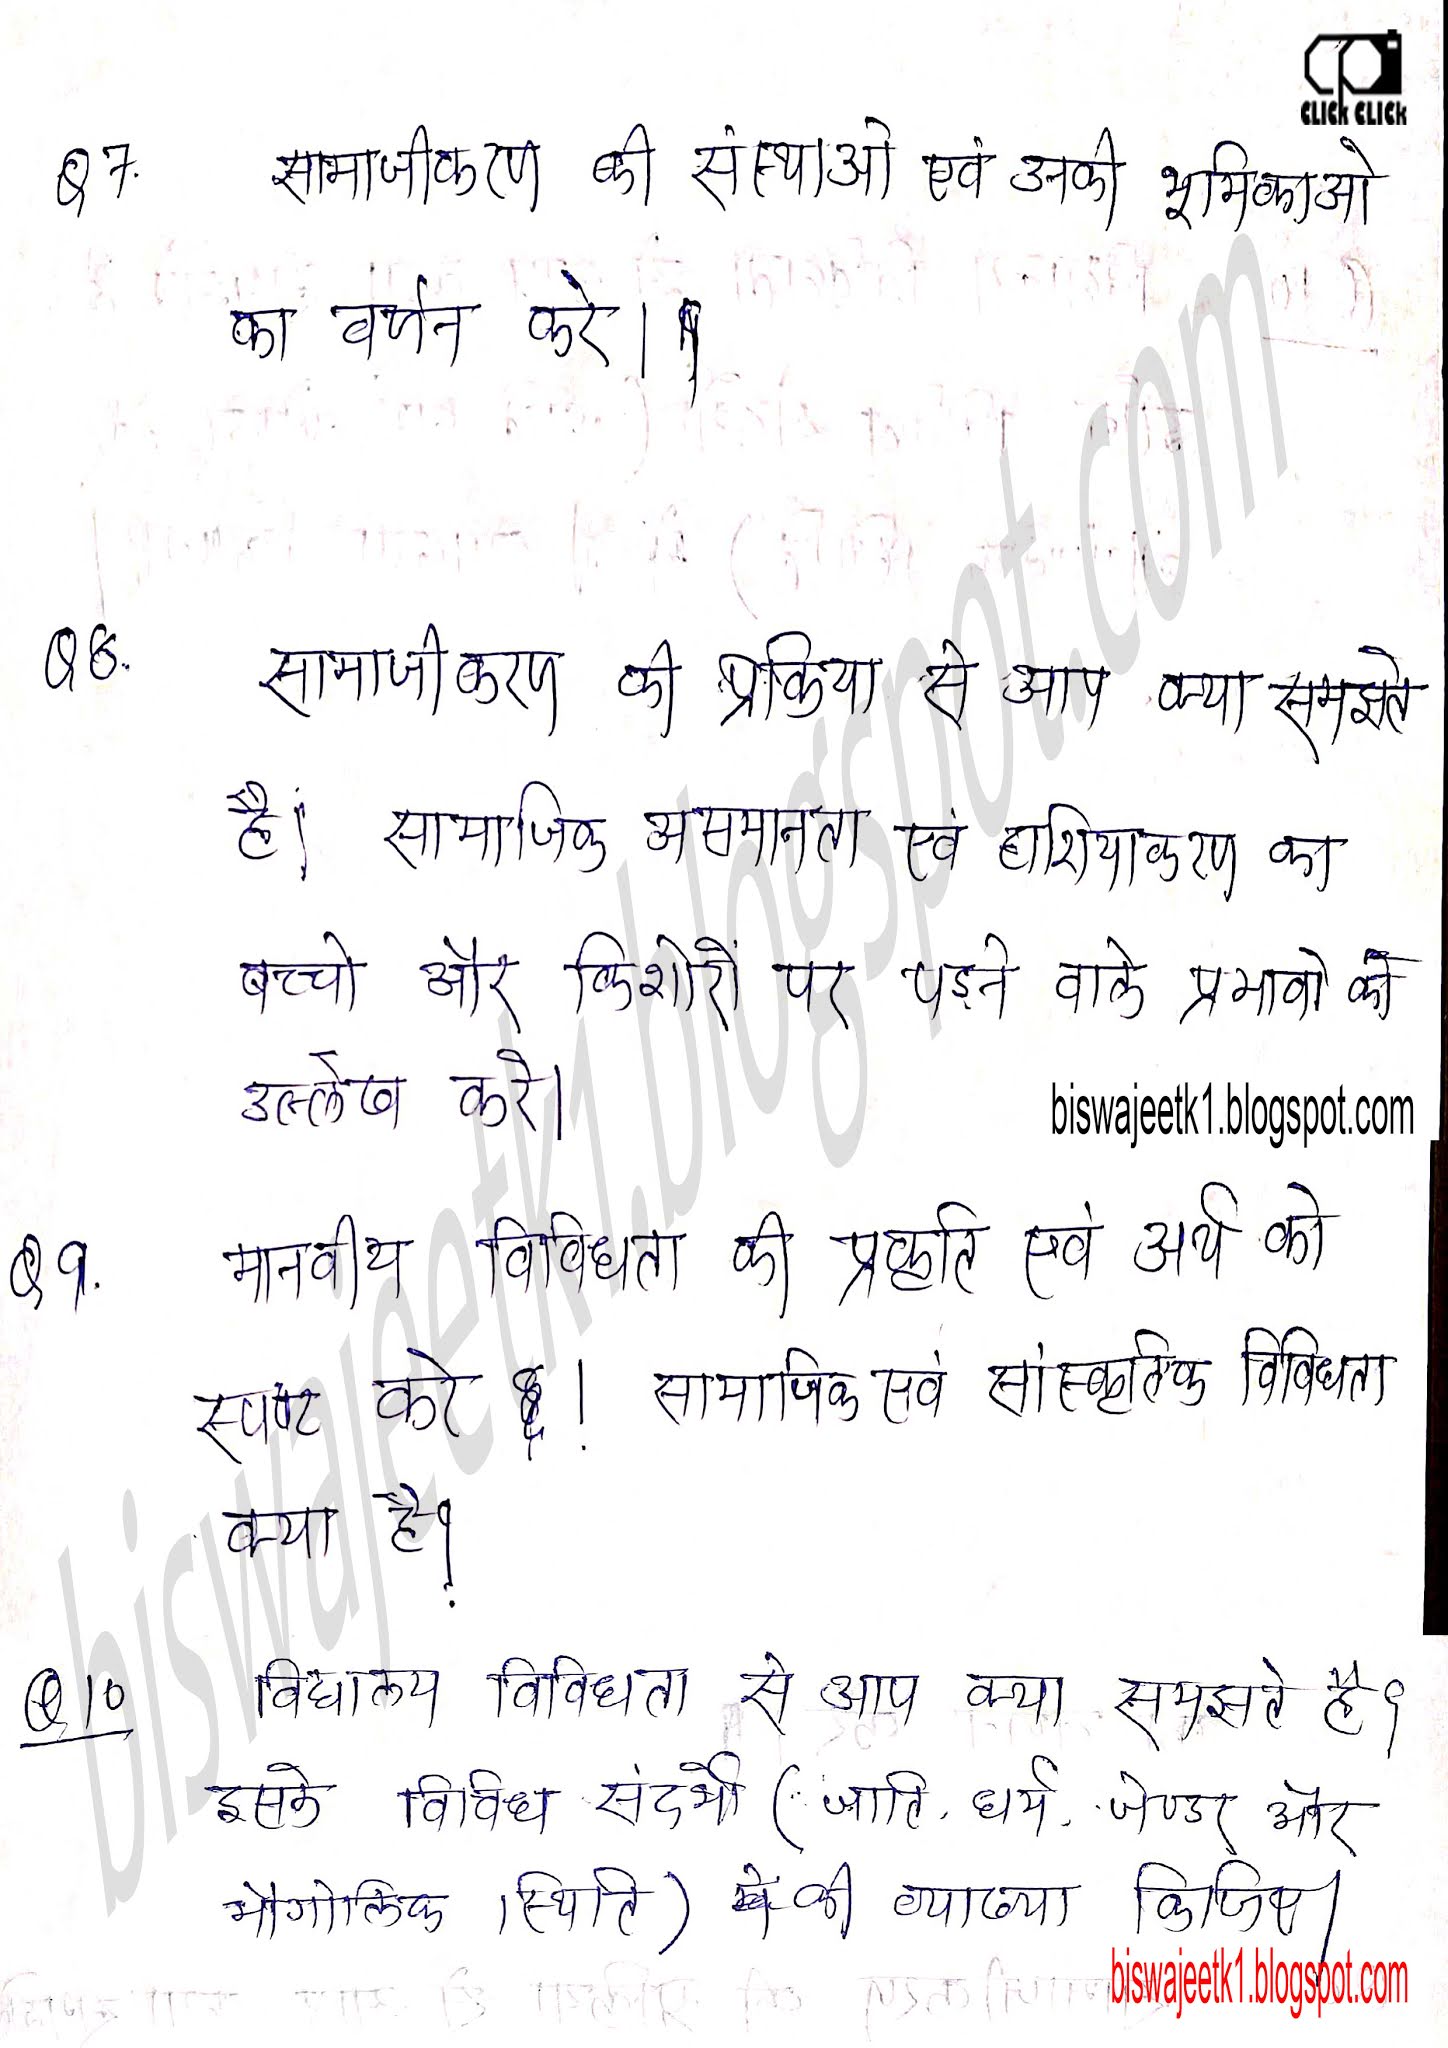 CLICK CLICK
Q 7. सामाजीकरण की संस्थाओ एवं उनकी भूमिकाओ
का वर्णन करे।
Q 8. सामाजीकरण की प्रक्रिया से आप क्या समझते
है। सामाजिक असमानता एवं हाशियाकरण का
बच्चो और किशोरों पर पड़ने वाले प्रभावो को
उल्लेख करे।
biswajeetk1.blogspot.com
Q 9. मानवीय विविधता की प्रकृति एवं अर्थ को
स्पष्ट करे । सामाजिक एवं सांस्कृतिक विविधता
क्या है?
Q 10 विद्यालय विविधता से आप क्या समझते है?
इसके विविध संदर्भो (जाति, धर्म, जेण्डर और
भौगोलिक स्थिति) की व्याख्या किजिए।
biswajeetk1.blogspot.com
biswajeetk1.blogspot.com